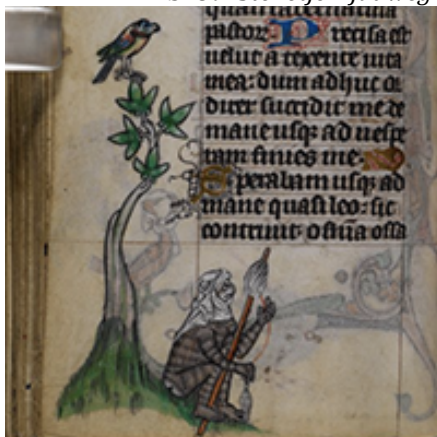 pastor: Precisa est
uelut a texente uita
mea: dum adhuc or
direr succidit me de
mane usqꝫ ad uespe
ram finies me.
Sperabam usqꝫ ad
mane quasi leo: sic
contriuit om̄ia ossa